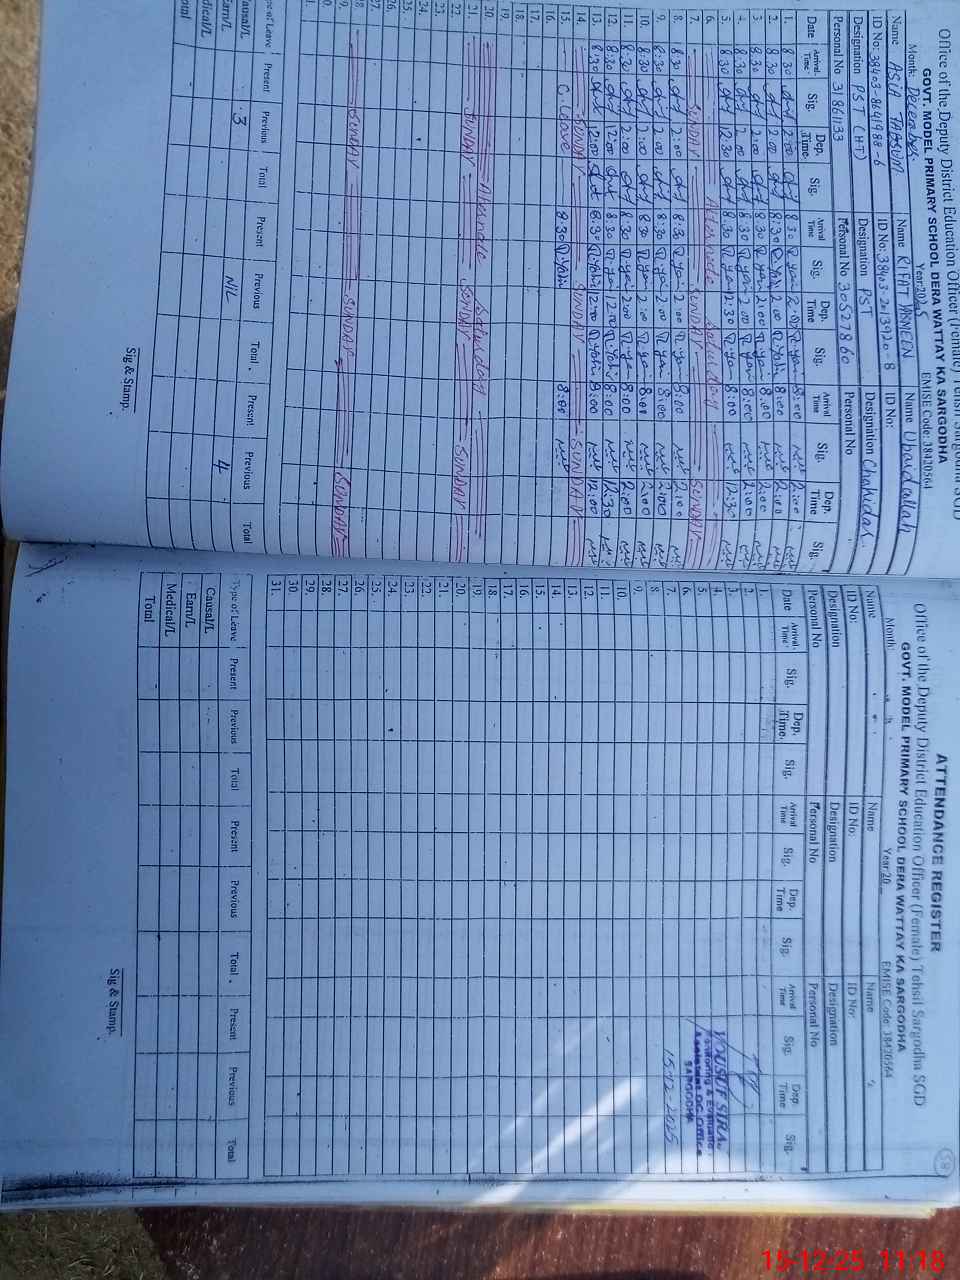 Office of the Deputy District Education Officer (Female) Tehsil Sargodha SGD
GOVT. MODEL PRIMARY SCHOOL DERA WATTAY KA SARGODHA
Month: December Year:2025 EMISE Code: 38420564
Name ASIA TABSUM Name RIFAT PARMEEN Name Ubaidallah
ID No: 38403-8641988-6 ID No: 38403-2013920-8 ID No:
Designation PST (HT) Designation PST Designation Chokidar
Personal No 31861133 Personal No 30527860 Personal No
Date Arrival Time Sig. Dep. Time. Sig. Arrival Time Sig. Dep. Time Sig. Arrival Time Sig. Dep. Time Sig.
1. 8:30 2:00 8:30 2:00 8:00 2:00
2. 8:30 2:00 8:30 2:00 8:00 2:00
3. 8:30 2:00 8:30 2:00 8:00 2:00
4. 8:30 2:00 8:30 2:00 8:00 2:00
5. 8:30 12:30 8:30 12:30 8:00 12:30
6. Alternade Saturday
7. SUNDAY SUNDAY SUNDAY
8. 8:30 2:00 8:30 2:00 8:00 2:00
9. 8:30 2:00 8:30 2:00 8:00 2:00
10. 8:30 2:00 8:30 2:00 8:00 2:00
11. 8:30 2:00 8:30 2:00 8:00 2:00
12. 8:30 12:00 8:30 12:00 8:00 12:30
13. 8:30 12:00 8:30 12:00 8:00 12:00
14. SUNDAY SUNDAY SUNDAY
15. C. leave 8:30 8:00
16.
17.
18.
19.
20. Alternade Saturday
21. SUNDAY SUNDAY SUNDAY
22.
23.
24.
25.
26
27
28. SUNDAY SUNDAY SUNDAY
9.
0.
1.
pe of Leave Present Previous Total Present Previous Total. Present Previous Total
Causal/L 3 NIL 4
Earn/L
Medical/L
Total
Sig & Stamp.
58
ATTENDANCE REGISTER
Office of the Deputy District Education Officer (Female) Tehsil Sargodha SGD
GOVT. MODEL PRIMARY SCHOOL DERA WATTAY KA SARGODHA
Month: Year:20 EMISE Code: 38420564
Name Name Name
ID No: ID No: ID No:
Designation Designation Designation
Personal No Personal No Personal No
Date Arrival Time Sig. Dep. Time. Sig. Arrival Time Sig. Dep. Time Sig. Arrival Time Sig. Dep. Time Sig.
1.
2.
3.
4. YOUSUF SIRAJ
5. Monitoring & Evaluation
Assistant DC Office
6. SARGODHA
7. 15-12-2025
8.
9.
10.
11.
12.
13.
14.
15.
16.
17.
18.
19.
20.
21.
22.
23.
24.
25.
26.
27.
28.
29.
30.
31.
Type of Leave Present Previous Total Present Previous Total. Present Previous Total
Causal/L
Earn/L
Medical/L
Total
Sig & Stamp.
15-12-25 11:18